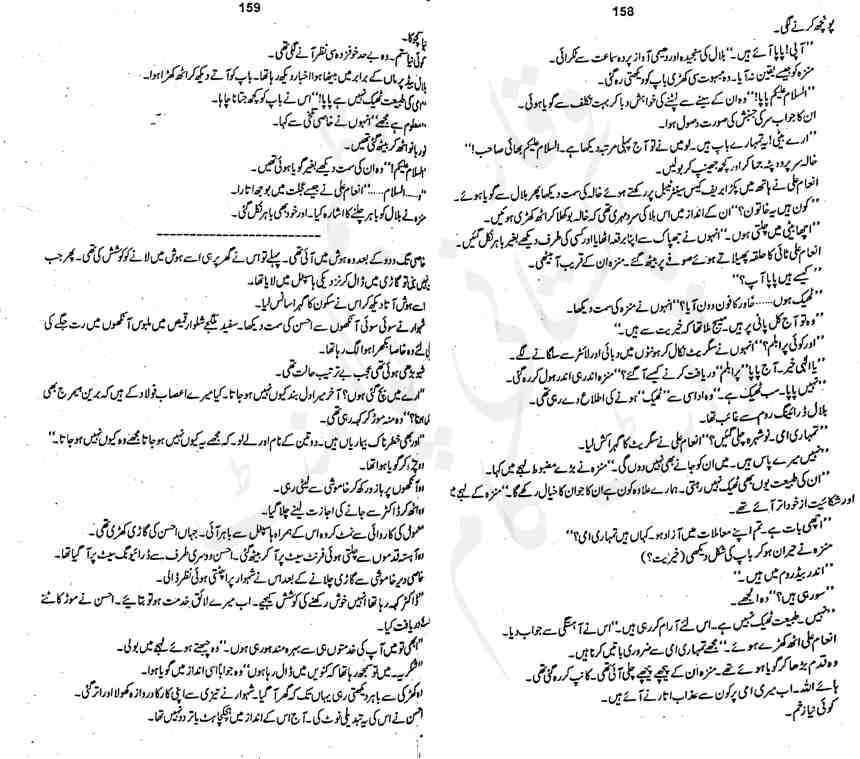 158
پونچھ کرنے لگی۔
”آپی! پاپا آئے ہیں۔“ بلال کی سنجیدہ اور دھیمی آواز پردہ سماعت سے ٹکرائی۔
منزہ کو جیسے یقین نہ آیا۔ وہ مبہوت سی کھڑی باپ کو دیکھتی رہ گئی۔
”السلام علیکم پاپا!“ وہ ان کے سینے سے لپٹنے کی خواہش دبا کر بہت تکلف سے گویا ہوئی۔
ان کا جواب سر کی جنبش کی صورت وصول ہوا۔
”ارے بیٹی! یہ تمہارے باپ ہیں۔ لو میں نے تو آج پہلی مرتبہ دیکھا ہے۔ السلام علیکم بھائی صاحب!“
خالہ سر پر دوپٹہ جما کر اور کچھ جھینپ کر بولیں۔
انعام علی نے ہاتھ میں پکڑا بریف کیس سینٹرٹیبل پر رکھتے ہوئے خالہ کی سمت دیکھا پھر بلال سے گویا ہوئے۔
”کون ہیں یہ خاتون؟“ ان کے انداز میں اس بلا کی سرد مہری تھی کہ خالہ بوکھلا کر اٹھ کھڑی ہوئیں۔
”اچھا بیٹی میں چلتی ہوں۔“ انہوں نے جھپاک سے اپنا برقعہ اٹھایا اور کسی کی طرف دیکھے بغیر باہر نکل گئیں۔
انعام علی ٹائی کا حلقہ پھیلاتے ہوئے صوفے پر بیٹھ گئے۔ منزہ ان کے قریب آ بیٹھی۔
”کیسے ہیں پاپا آپ؟“
”ٹھیک ہوں...... خاور کا فون وون آیا؟“ انہوں نے منزہ کی سمت دیکھا۔
”وہ تو آج کل پانی پر ہیں۔ میسج ملا تھا کہ خیریت سے ہیں۔“
”اور کوئی پرابلم؟“ انہوں نے سگریٹ نکال کر ہونٹوں میں دبائی اور لائٹر سے سلگانے لگے۔
”یا الہی خیر۔ آج پاپا ”پرابلم“ دریافت کرنے کیسے آ گئے؟“ منزہ اندر ہی اندر ہول کر رہ گئی۔
”نہیں پاپا۔ سب ٹھیک ہے۔“ وہ اداسی سے ”ٹھیک“ ہونے کی اطلاع دے رہی تھی۔
بلال ڈرائینگ روم سے غائب تھا۔
”تمہاری امی۔ نوشہرہ چلی گئیں؟“ انعام علی نے سگریٹ کا گہرا کش لیا۔
”نہیں میرے پاس ہیں۔ میں ان کو جانے بھی نہیں دوں گی۔“ منزہ نے بڑے مضبوط لہجے میں کہا۔
”ان کی طبیعت یوں بھی ٹھیک نہیں رہتی۔ ہمارے علاوہ کون ہے ان کا جو ان کا خیال رکھے گا۔“ منزہ کے لہجے میں
اور شکائیت از خود اتر آئے تھے۔
”اچھی بات ہے۔ تم اپنے معاملات میں آزاد ہو۔ کہاں ہیں تمہاری امی؟“
منزہ نے حیران ہو کر باپ کی شکل دیکھی (خیریت؟)
”اندر بیڈ روم میں ہیں۔“
”سو رہی ہیں؟“ وہ الجھے۔
”نہیں۔ طبیعت ٹھیک نہیں ہے۔ اس لئے آرام کر رہی ہیں۔“ اس نے آہستگی سے جواب دیا۔
انعام علی اٹھ کھڑے ہوئے۔ ”مجھے تمہاری امی سے ضروری باتیں کرنا ہیں۔“
وہ قدم بڑھا کر گویا ہوئے تھے۔ منزہ ان کے پیچھے پیچھے چلی آئی تھی۔ کانپ کر رہ گئی تھی۔
ہائے اللہ۔ اب میری امی پر کون سے عذاب اتارنے آئے ہیں۔
کوئی نیا زخم۔
159
نیا کچوکا۔
کوئی نیا ستم۔ وہ بے حد خوفزدہ سی نظر آنے لگی تھی۔
بلال بیڈ پر ماں کے برابر میں بیٹھا ہوا اخبار دیکھ رہا تھا۔ باپ کو آتے دیکھ کر اٹھ کھڑا ہوا۔
”امی کی طبیعت ٹھیک نہیں ہے پاپا!“ اس نے باپ کو کچھ جتانا چاہا۔
”معلوم ہے مجھے“ انہوں نے خاصی تلخی سے کہا۔
نور بانو اٹھ کر بیٹھ گئی تھیں۔
”السلام علیکم!“ وہ ان کی سمت دیکھے بغیر گویا ہوئی تھیں۔
”و...... السلام......“ انعام علی نے جیسے عجلت میں بوجھ اتارا۔
منزہ نے بلال کو باہر چلنے کا اشارہ کیا۔ اور خود بھی باہر نکل گئی۔
خاصی تگ و دو کے بعد وہ ہوش میں آئی تھی۔ پہلے تو اس نے گھر پر ہی اسے ہوش میں لانے کی کوشش کی تھی۔ پھر جب
نہیں بنی تو گاڑی میں ڈال کر نزدیکی ہاسپٹل میں لایا تھا۔
اسے ہوش آتا دیکھ کر اس نے سکون کا گہرا سانس لیا۔
شہوار نے سوئی سوئی آنکھوں سے احسن کی سمت دیکھا۔ سفید ملگجے شلوار قمیض میں ملبوس آنکھوں میں رت جگے کی
لئے وہ خاصا بکھرا ہوا لگ رہا تھا۔
شیو بڑھی ہوئی تھی عجب بے ترتیب حالت تھی۔
”ارے میں بچ گئی ہوں؟ آخر میرا دل بند کیوں نہیں ہو جاتا۔ کیا میرے اعصاب فولاد کے ہیں کہ برین ہیمرج بھی
نہیں ہوتا؟“ وہ منہ موڑ کر کہہ رہی تھی۔
”اور بھی خطرناک بیماریاں ہیں۔ دو تین کے نام اور لے لو۔ کہ مجھے یہ کیوں نہیں ہو جاتا مجھے وہ کیوں نہیں ہو جاتا۔“
وہ چڑ کر گویا ہوا تھا۔
وہ آنکھوں پر بازو رکھ کر خاموشی سے لیٹی رہی۔
وہ اٹھ کر ڈاکٹر سے جانے کی اجازت لینے چلا گیا۔
معمول کی کاروائی سے نمٹ کر وہ اس کے ہمراہ ہاسپٹل سے باہر آئی۔ جہاں احسن کی گاڑی کھڑی تھی۔
وہ آہستہ قدموں سے چلتی ہوئی فرنٹ سیٹ پر آ کر بیٹھ گئی۔ احسن دوسری طرف سے ڈرائیونگ سیٹ پر آ گیا تھا۔
خاصی دیر خاموشی سے گاڑی چلانے کے بعد اس نے شہوار پر اچٹتی ہوئی نظر ڈالی۔
”ڈاکٹر کہہ رہا تھا انہیں خوش رکھنے کی کوشش کیجیے۔ اب میرے لائق خدمت ہو تو بتائیے۔ احسن نے موڑ کاٹتے
دریافت کیا۔
”ابھی تو میں آپ کی خدمتوں ہی سے بہرہ مند ہو رہی ہوں۔“ وہ چبھتے ہوئے لہجے میں بولی۔
”شکریہ۔ میں تو سمجھ رہا تھا کہ کنویں میں ڈال رہا ہوں“ وہ جواباً اسی انداز میں گویا ہوا۔
وہ کھڑکی سے باہر دیکھتی رہی یہاں تک کہ گھر آ گیا۔ شہوار نے تیزی سے اپنی کار کا دروازہ کھولا اور اتر گئی۔
احسن نے اس کی یہ تبدیلی نوٹ کی۔ آج اس کے انداز میں ہچکچاہٹ یا تردد نہیں تھا۔